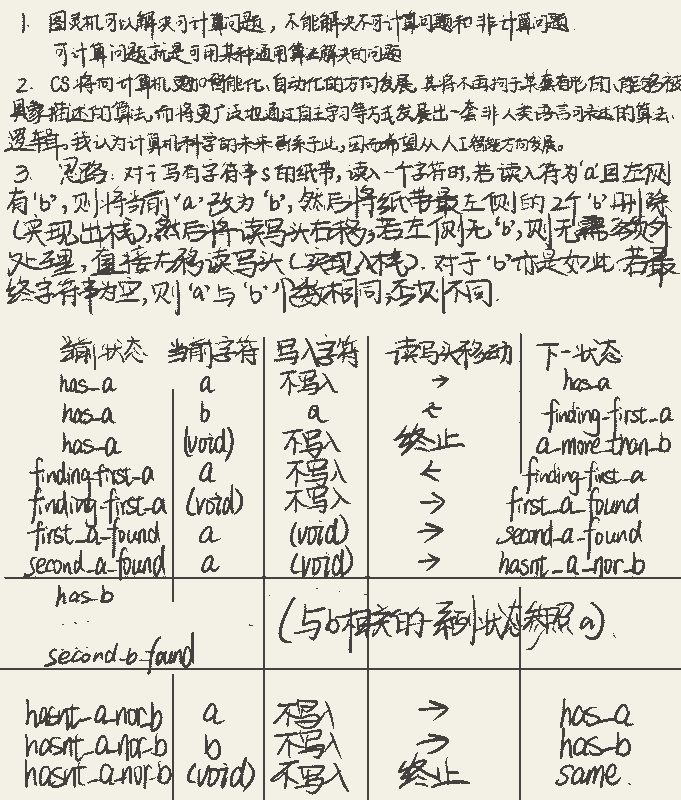 1. 图灵机可以解决可计算问题，不能解决不可计算问题和非计算问题.
可计算问题就是可用某种通用算法解决的问题
2. CS将向计算机更加智能化、自动化的方向发展，其将不再拘于某套有形的、能够被
具象描述的算法，而将更广泛地通过自主学习等方式发展出一套非人类语言可表述的算法、
逻辑。我认为计算机科学的未来因系于此，因而希望从人工智能方向发展。
3. 思路：对于写有字符串s的纸带，读入一个字符时，若读入符为'a'且左侧
有'b'，则将当前'a'改为'b'，然后将纸带最左侧的2个'b'删除
(实现出栈)，然后将读写头右移；若左侧无'b'，则无需额外
处理，直接右移读写头(实现入栈). 对于'b'亦是如此. 若最
终字符串为空，则'a'与'b'个数相同，否则不同.
当前状态 当前字符 写入字符 读写头移动 下一状态
has_a a 不写入 → has_a
has_a b a ← finding_first_a
has_a (void) 不写入 终止 a_more_than_b
finding_first_a a 不写入 ← finding_first_a
finding_first_a (void) 不写入 → first_a_found
first_a_found a (void) → second_a_found
second_a_found a (void) → hasnt_a_nor_b
has_b
... (与b相关的一系列状态参照a).
second_b_found
hasnt_a_nor_b a 不写入 → has_a
hasnt_a_nor_b b 不写入 → has_b
hasnt_a_nor_b (void) 不写入 终止 same.